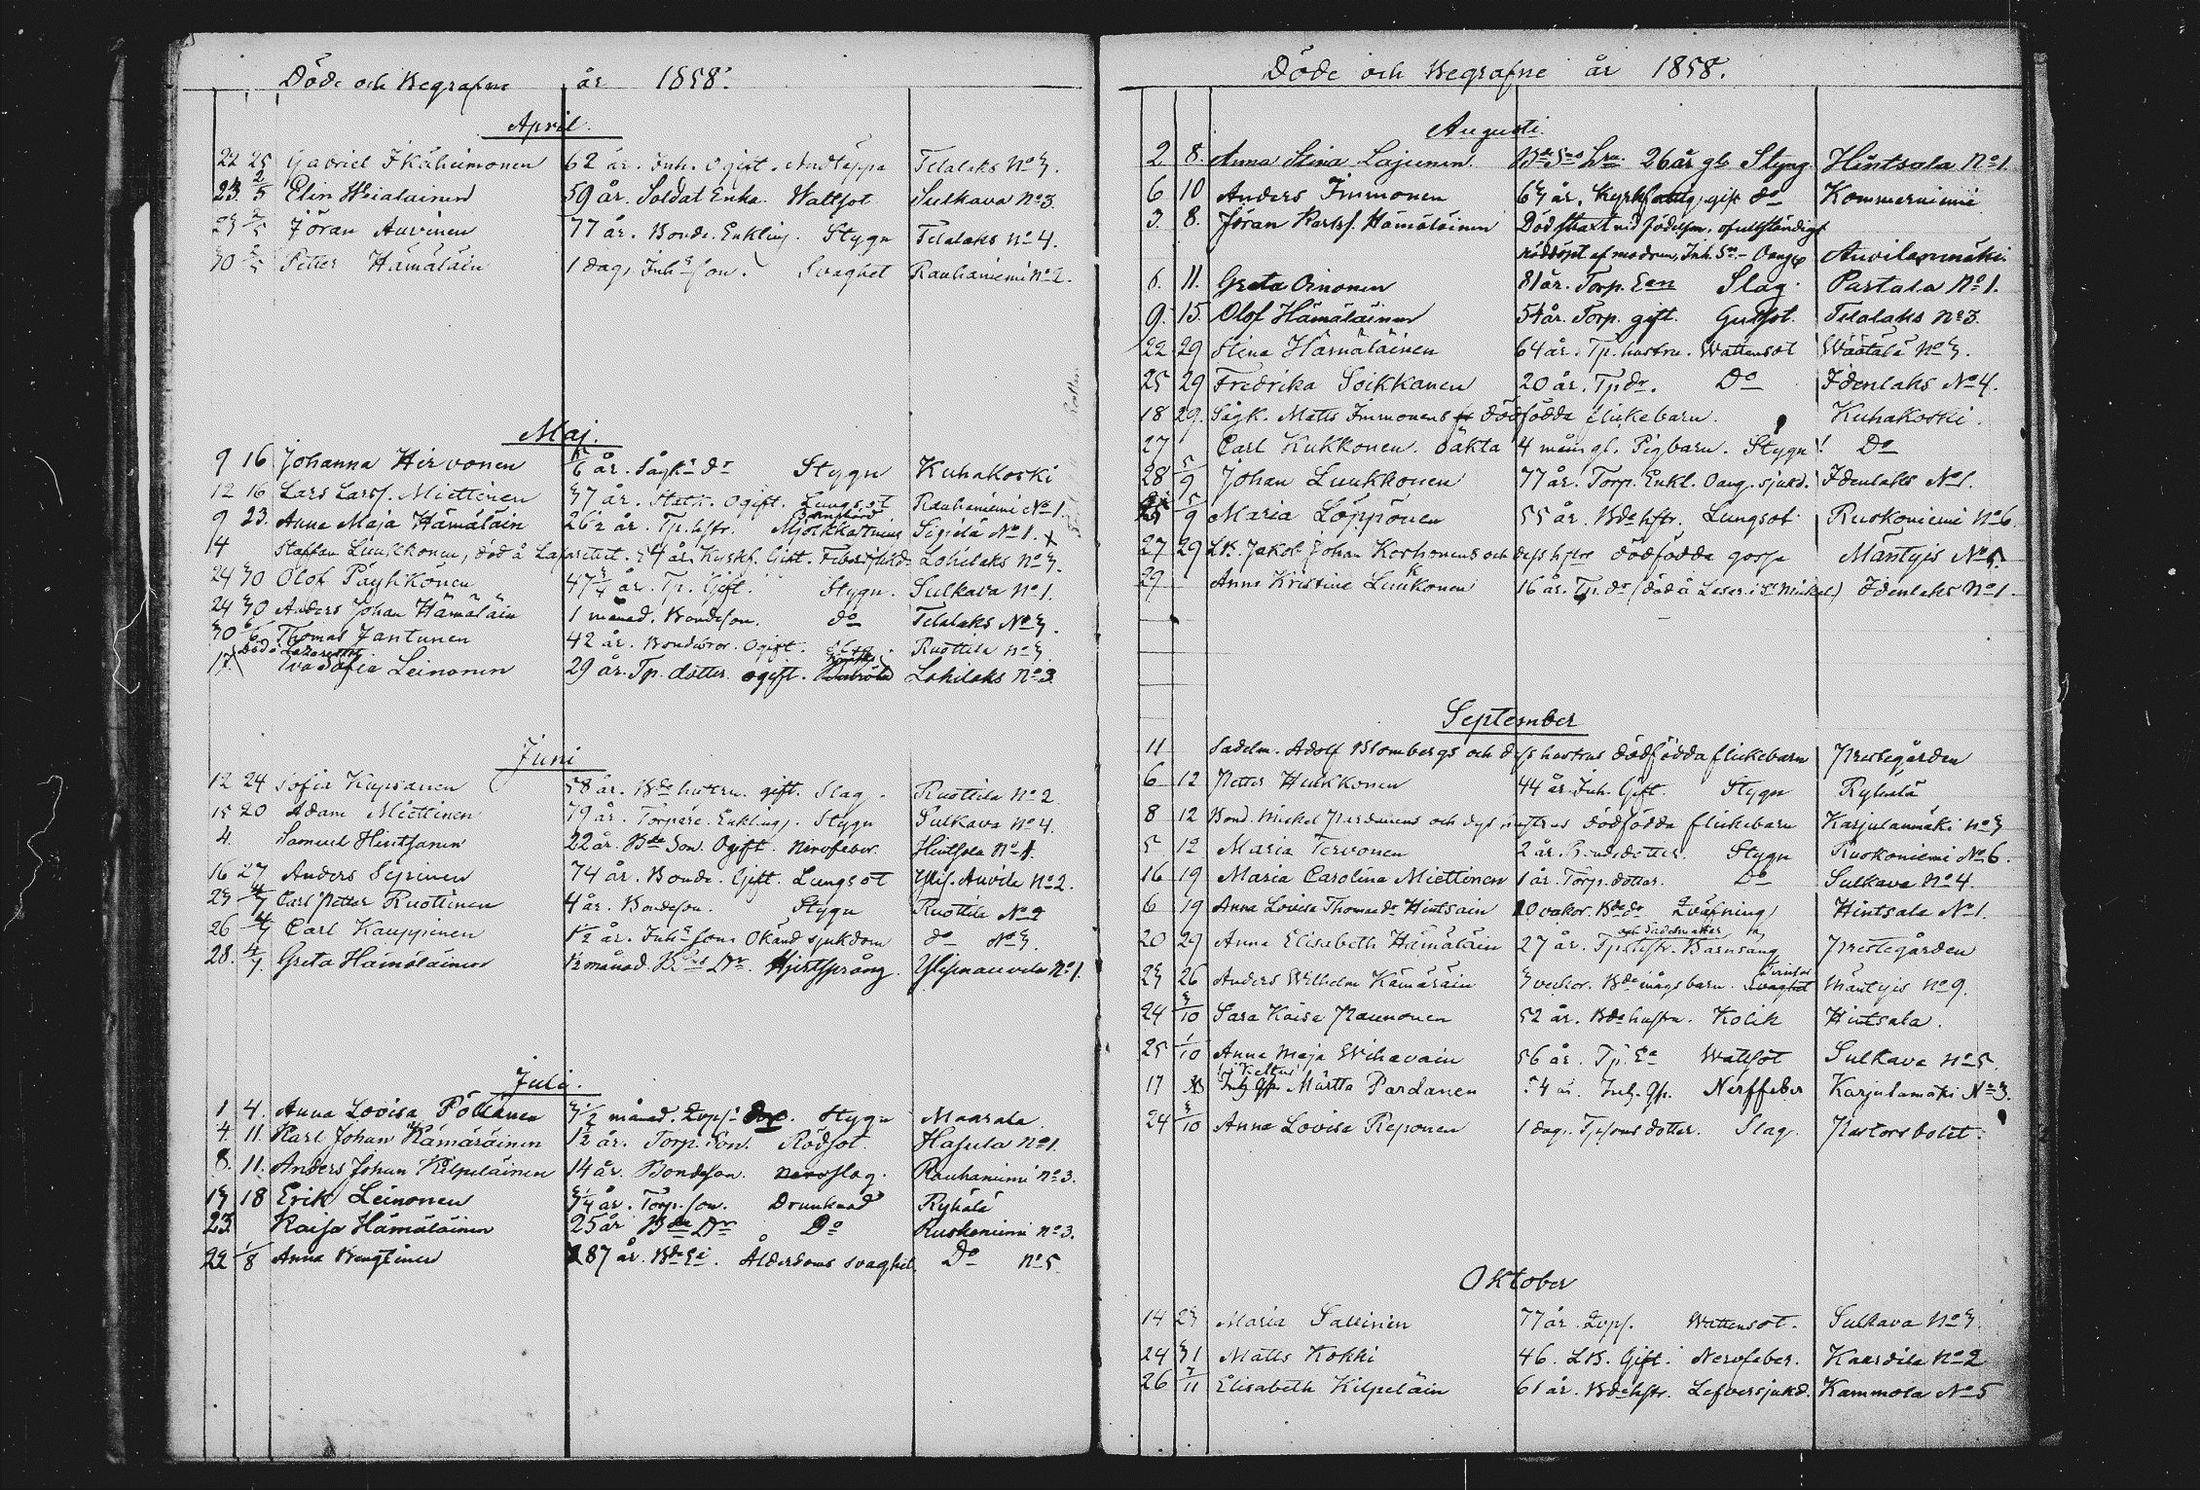 Döde och Begrafne år 1858.
April.
22 25 Gabriel Ikäheimonen 62 år. Inh. Ogift. Telalaks No 3.
23. 2/5 Elin 59 år. Soldat Enka. Wattsot Sulkava No 3.
2/5 Jöran Auvinen 77 år. Bonde. Enkling. Stygn Telalaks No 4.
30 2/5 Petter Hämäläin 1 dag, Inhs son. Svaghet Rauhaniemi No 2.
Maj.
9 16 Johanna Hirvonen år. Sågks dr Stygn Kuhakoski
12 16 Lars Larss. Miettinen 37 år. Ogift. Lungsot Rauhaniemi No 1.
9 23. Anna Maja Hämäläin 26½ år. Tp. hstr. No 1.
14 Staffan Liukkonen, död å Lasarettet. år. Kyrkf. Gift. Lohilaks No 3.
24 30 Olof Päylikönen 47 år. Tp. Gift. Stygn. Sulkava No 1.
24 30 Anders Johan Hämäläin 1 månad. Bondeson. do Telalaks No 3.
30 6/6 Thomas Jantunen 42 år. Bondebror. Ogift. Ruottila No 3
Död å Lazarettet
17. Eva Sofia Leinonen 29 år. Tp. dotter. ogift. Lohilaks No 3.
Juni
12 24 Sofia Kupiainen 58 år. Bde hustru. gift. Slag. Ruottila No 2
15 20 Adam Miettinen 79 år. Torpare. Enkling. Stygn Sulkava No 4.
4. Samuel Hintsanen 22 år. Bde Son. Ogift. Nervfeber. Hintsala No 1.
16 27 Anders 74 år. Bonde. Gift. Lungsot Ylis. Auvila No 2.
4/7 Carl Petter Ruottinen 4 år. Bondeson. Stygn Ruottila No 2
26 4/7 Carl Kauppinen 1½ år. Inhs son. Okänd sjukdom do No 3.
28. 4/7. Greta Hämäläinen ½ månad. Dr. Hjertsprång. Ylismauvila No 1.
Juli.
1 4. Anna Lovisa Pöllänen månad. Stygn Maarala.
4. 11. Karl Johan Kämäräinen 1½ år. Torp. Son. Rödsot. Hasula No 1.
8. 11. Anders Johan Kilpeläinen 14 år. Bondeson. nervslag. Rauhaniemi No 3.
13 18 Erik Leinonen år. Torp. son. Drunknad Ryhälä
23. Kaisa Hämäläinen 25 år Bde Dr Do Ruokoniemi No 3.
22 1/8 Anna 87 år. Ålderdoms svaghet. Do No 5.
Döde och Begrafne år 1858.
Augusti.
2 8. Anna Stina Lajunen. 26 år gl. Styng. Hintsala No 1.
6 10 Anders Immonen 63 år. Kyrkfattig, gift do Kommerniemi
3. 8. Jöran Karlss. Hämäläinen Död strax vid födelsen, ofullständigt
nöddöpt af modren, Inh. Sn. Auvilanmäki.
6. 11. Greta Oinonen 81 år. Torp. Ean Slag. Partala No 1.
9. 15. Olof Hämäläinen 54 år. Torp. gift. Gulsot. Telalaks No 3.
22 29 Stina Hämäläinen 64 år. Tp. hustru. Wattensot Wäätälä No 3.
25 29 Fredrika Soikkanen 20 år. Tp dr. Do Idenlaks No 4.
18 29. Sågk. Matts Immonens dödfödda flickebarn. Kuhakoski.
27 Carl Kukkonen. oäkta 4 mån. gl. Pigbarn. Stygn! Do
28 5/9 Johan Luukkonen 77 år. Torp. Enkl. Oang. sjukd. Idenlaks No 1.
25 5/9 Maria Löppönen 55 år. Bde hstr. Lungsot Ruokoniemi No 6.
27 29 LB. Jakob Johan Korhonens och dess hstrs dödfödda gosse Mäntyis No 5.
29 Anna Kristina Luukkonen 16 år. Tp. dr (död å Lasar. i St Mickel) Idenlaks No 1
September
11 Sadelm. Adolf Blombergs och dess hustrus dödfödda flickebarn Prestegården
6 12 Petter Hukkonen 44 år. Inh. Gift. Stygn Ryhälä
8 12 Bond. Mickel Pardainens och dess hustrus dödfödda flickebarn Karjulanmäki No 3
5 12 Maria Tervonen 2 år. Bondedotter. Stygn Ruokoniemi No 6.
16 19 Maria Carolina Miettinen 1 år. Torp. dotter. Do Sulkava No 4.
6 19 Anna Lovisa Thomasdr Hintsain 10 vekor. Bde dr Qväfning Hintsala No 1.
20 29 Anna Elisabeth Hämäläin 27 år. Tp. hstr. Barnsäng Prestegården
23 26 Anders Wilhelm Kämäräin 3 veckor. Bde mågs barn. Svaghet Mäntyis No 9.
24 3/10 Sara Kaisa Paunonen 52 år. Bde hustru. Kolik Hintsala.
25 1/10 Anna Maja Wihavain 56 år. Tp. Ea Wattsot Sulkava No 5.
17 Märtta Pardanen 54 år. Inh. Nerffeber Karjulamäki No 3.
24 3/10 Anna Lovisa Reponen 1 dag. Tp sons dotter. Slag. Pastorsbolet.
Oktober
14 23 Maria Sallinen 77 år. Wattensot. Sulkava No 3.
24 31 Matts Kokki 46. LB. Gift. Nervfeber. Kaardila No 2
26 7/11 Elisabeth Kilpeläin 61 år. Bde hstr. Lefversjukd. Kammola No 5